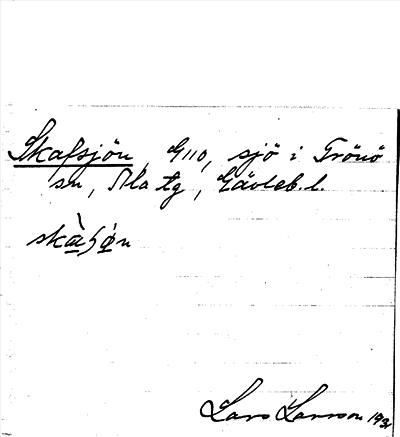 Skafsjön, G110, sjö i Trönö
sn, Ala tg, Gävleb. l.
skàɧø̀n
Lars Larsson 193